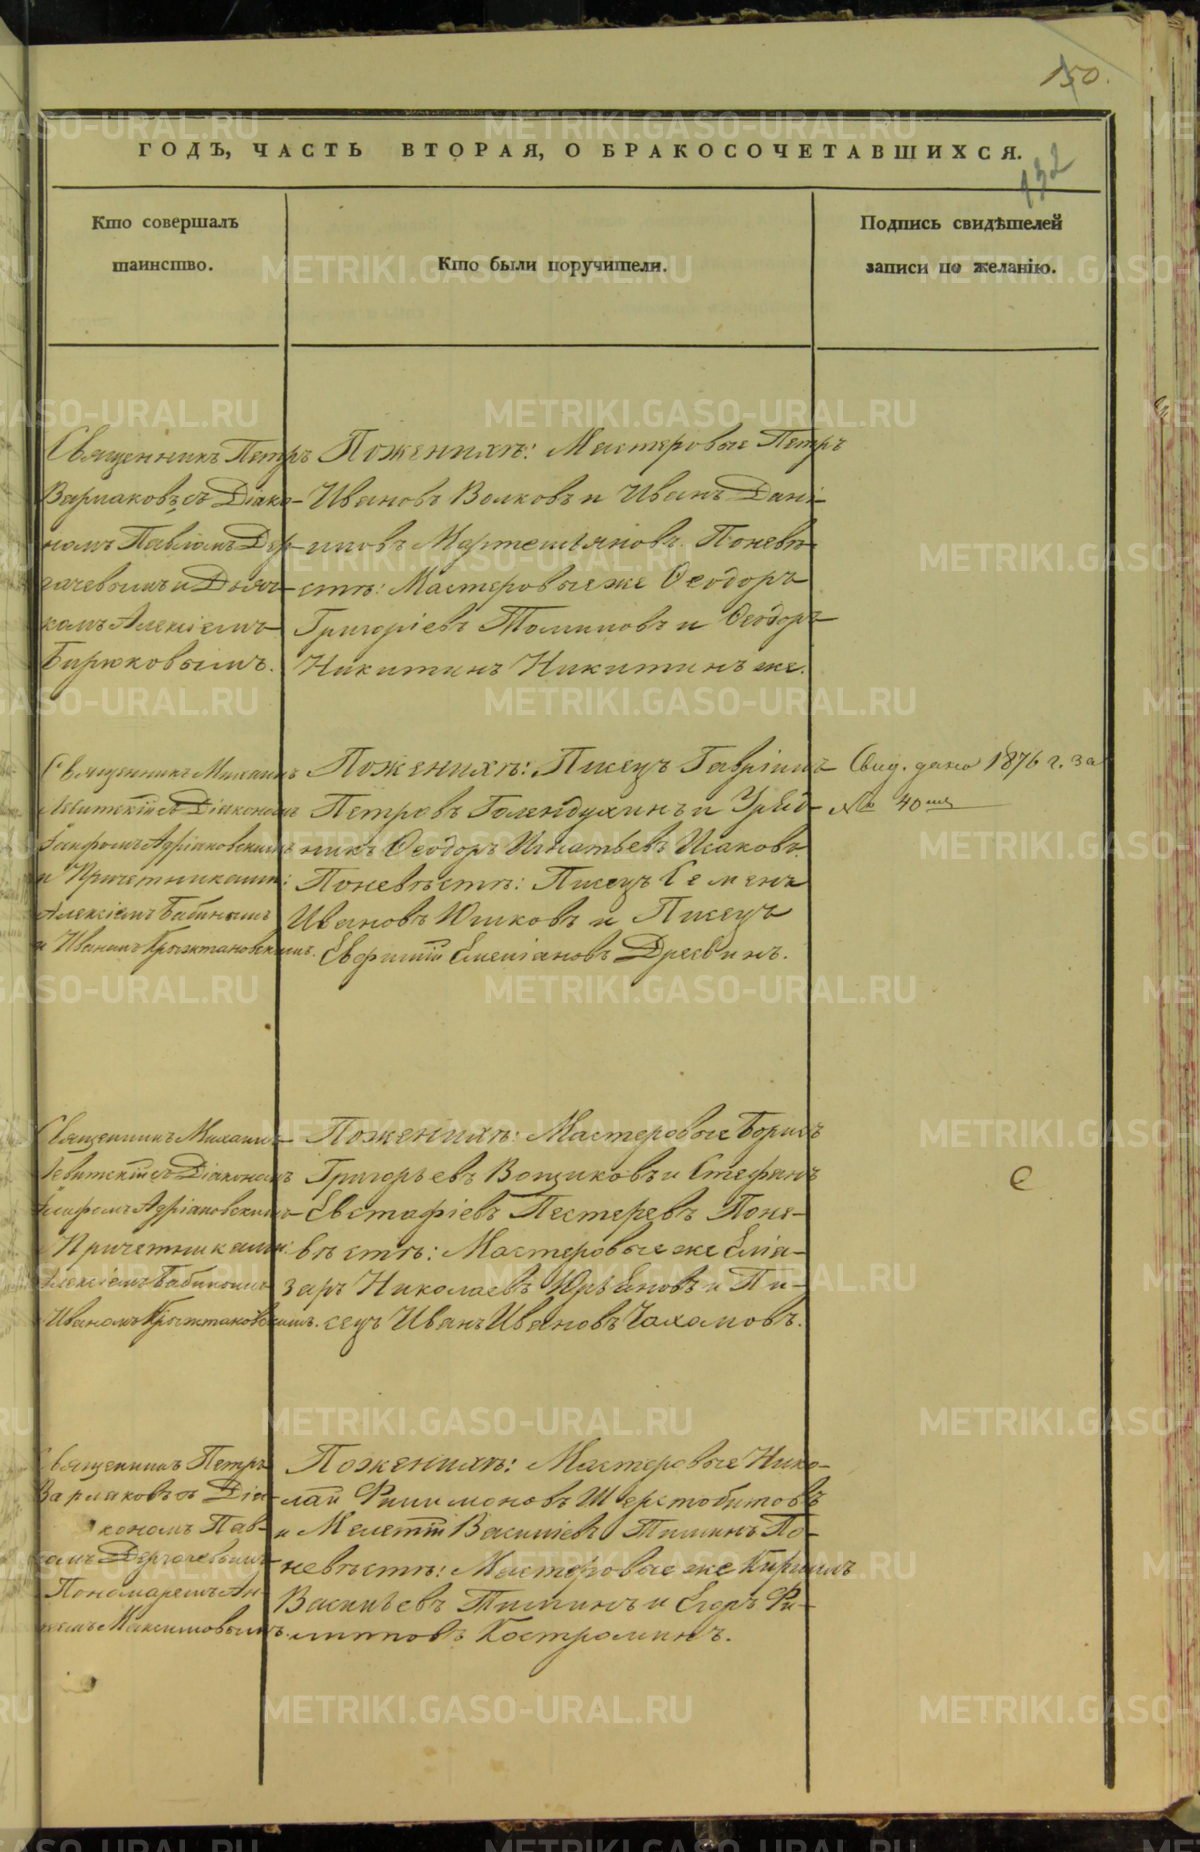 150.
ГОДЪ, ЧАСТЬ ВТОРАЯ, О БРАКОСОЧЕТАВШИХСЯ.
132
Кто совершалъ
таинство.
Кто были поручители.
Подпись свидѣтелей
записи по желанію.
Священникъ Петръ
Варлаковъ съ Діако-
номъ Павломъ Дер-
гачевымъ и Дьяч-
комъ Алексіемъ
Бирюковымъ.
Поженихѣ: Мастеровые Петръ
Ивановъ Волковъ и Иванъ Дані-
иловъ Мартемьяновъ. Поневѣ-
стѣ: Мастеровые же Ѳеодоръ
Григоріевъ Томиловъ и Ѳеодоръ
Никитинъ Никитинъ же.
Священникъ Михаилъ
Левитскій съ Діакономъ
Адріановскимъ
и Причетниками:
Алексіемъ Бабинымъ
и Иваномъ Крыжтановскимъ.
Поженихѣ: Писецъ Гавріилъ
Петровъ Голендухинъ и Уряд-
никъ Ѳеодоръ Игнатьевъ Исаковъ.
Поневѣстѣ: Писецъ Семенъ
Ивановъ Юшковъ и Писецъ
Евфимій Емеліановъ Древинъ.
Свид. дано 1876 г. за
№ 40
Священникъ Михаилъ
Левитскій съ Діакономъ
Адріановскимъ
Причетниками:
Алексіемъ Бабинымъ
Иваномъ Крыжтановскимъ.
Поженихѣ: Мастеровые Борисъ
Григорьевъ Вощиковъ и Стефанъ
Евстафіевъ Пестеревъ Поне-
вѣстѣ: Мастеровые же Еліа-
заръ Николаевъ Юрьяновъ и Пи-
сецъ Иванъ Ивановъ Чахомовъ.
С
Священникъ Петръ
Варлаковъ съ Діа-
кономъ Пав-
ломъ Дергачевымъ
Пономаремъ
Максимовымъ.
Поженихѣ: Мастеровые Нико-
лай Филимоновъ Шерстобитовъ
и Мелетій Василіевъ Тиминъ По-
невѣстѣ: Мастеровые же Кириллъ
Васильевъ Тиминъ и Егоръ Фи-
липповъ Костроминъ.
METRIKI.GASO-URAL.RU